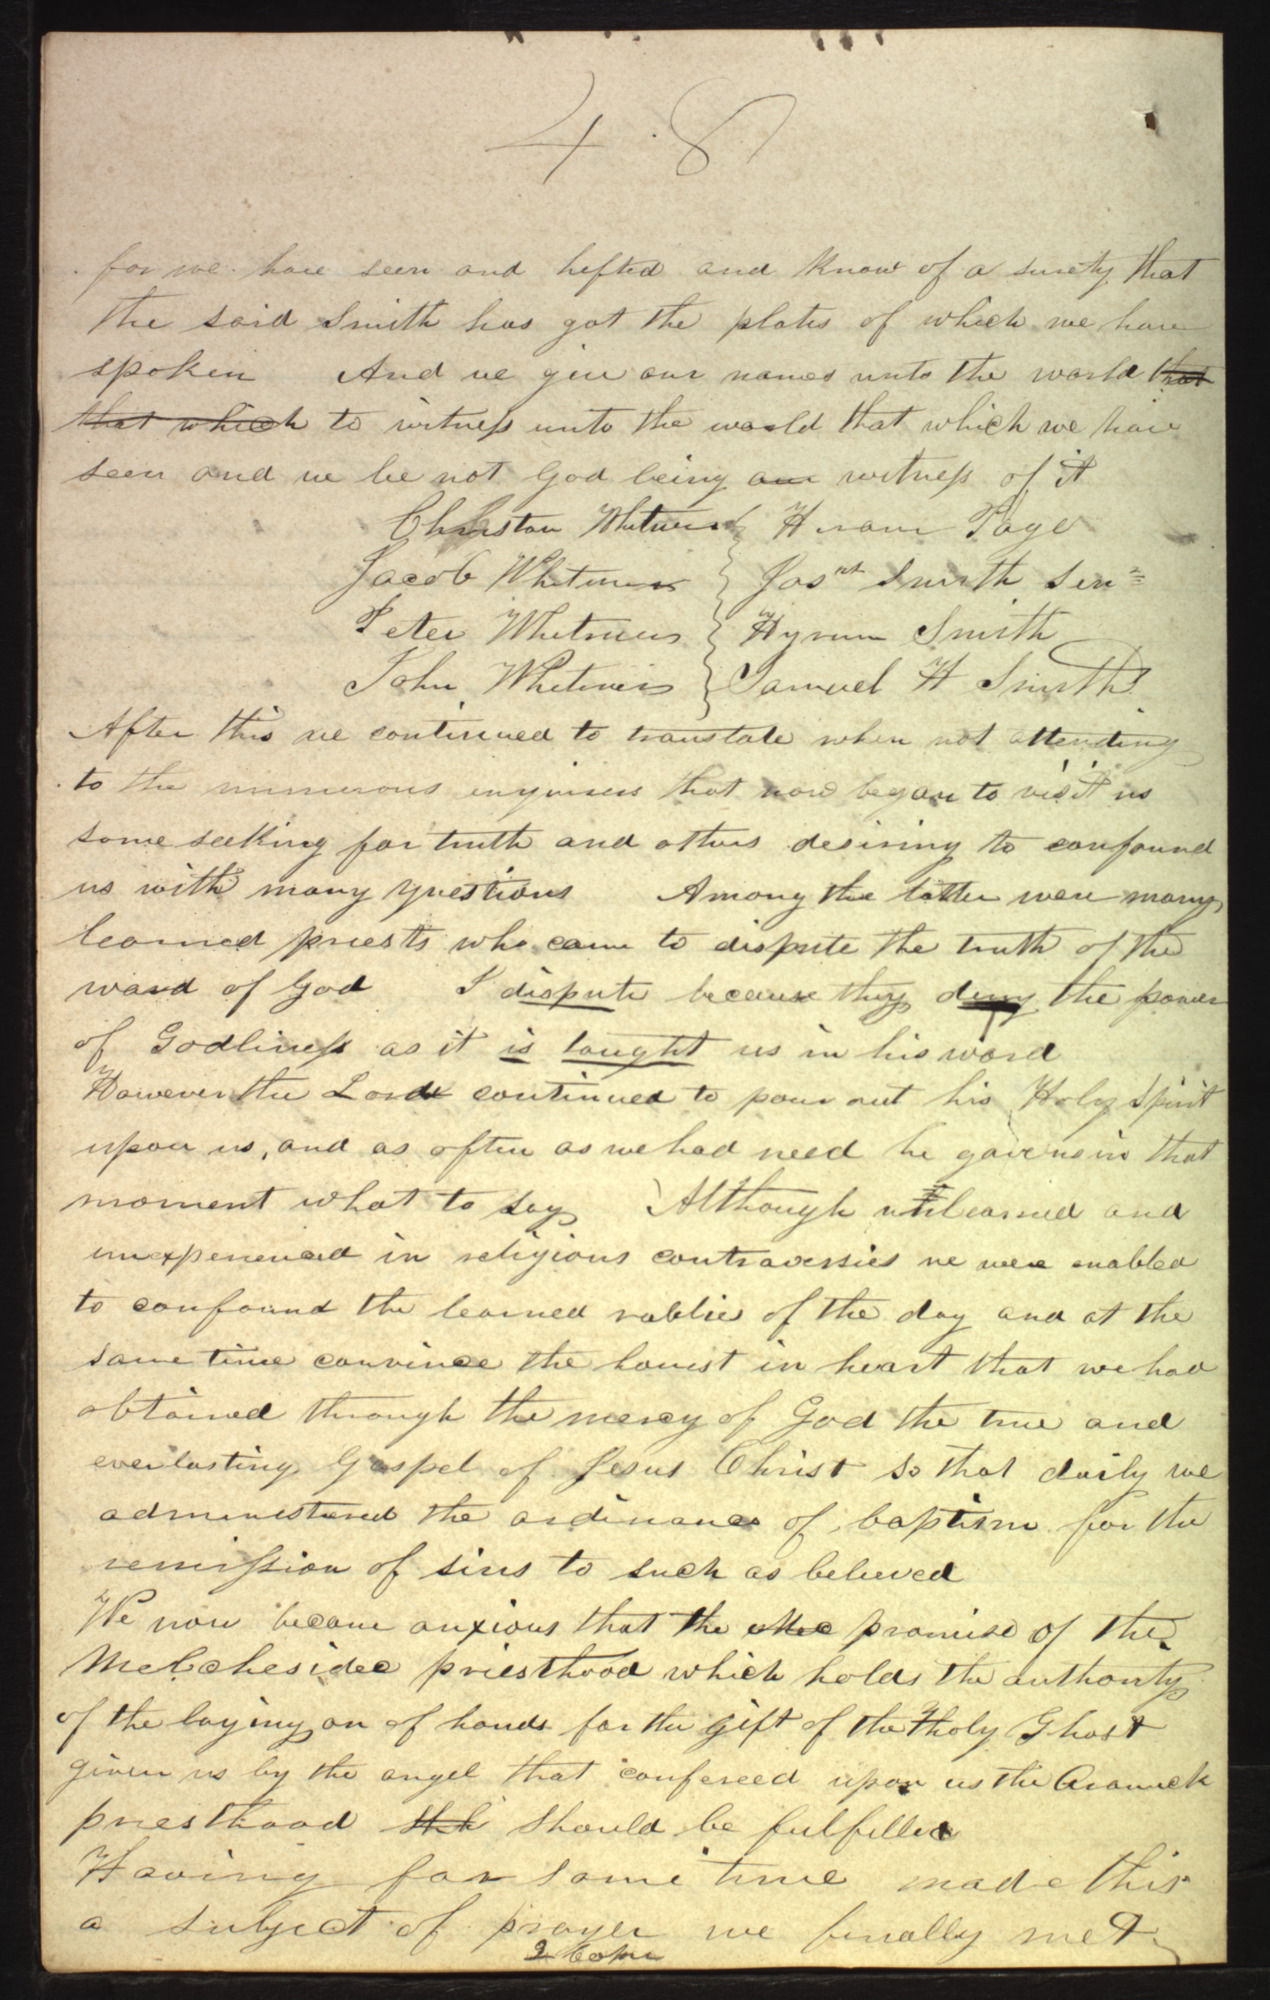 48
for we have seen and hefted and know of a surety that
the said Smith has got the plates of which we have
spoken And we give our names unto the world that
that which to witness unto the world that which we have
seen and we lie not God being our witness of it
Christian Whitmer Hiram Page
Jacob Whitmer Jos ph Smith Senr
Peter Whitmer Hyrum Smith
John Whitmer Samuel H Smith
After this we continued to translate when not attending
to the numerous inquirers that now began to visit us
some seeking for truth and others desiring to confound
us with many questions Among the latter were many
learned priests who came to dispute the truth of the
word of God I dispute because they deny the power
of Godliness as it is taught us in his word
However the Lord continued to pour out his Holy Spirit
upon us, and as often as we had need he gave us in that
moment what to say Although unlearned and
unexperienced in religious controversies we were enabled
to confound the learned rabbies of the day and at the
same time convince the honest in heart that we had
obtained through the mercy of God the true and
everlasting Gospel of Jesus Christ so that daily we
administered the ordinance of baptism for the
remission of sins to such as believed
We now became anxious that the promise of the
Melchesidec priesthood which holds the authority
of the laying on of hands for the gift of the Holy Ghost
given us by the angel that confered upon us the Aronick
priesthood should be fulfilled
Having for some time made this
a subject of prayer we finally met